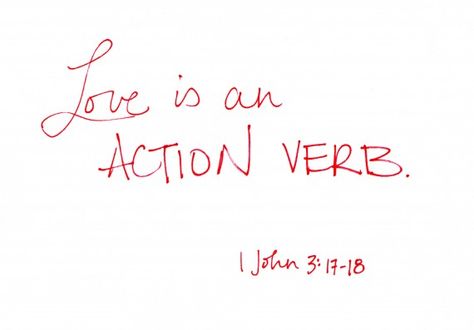 Love is an
ACTION VERB.
1 John 3:17-18